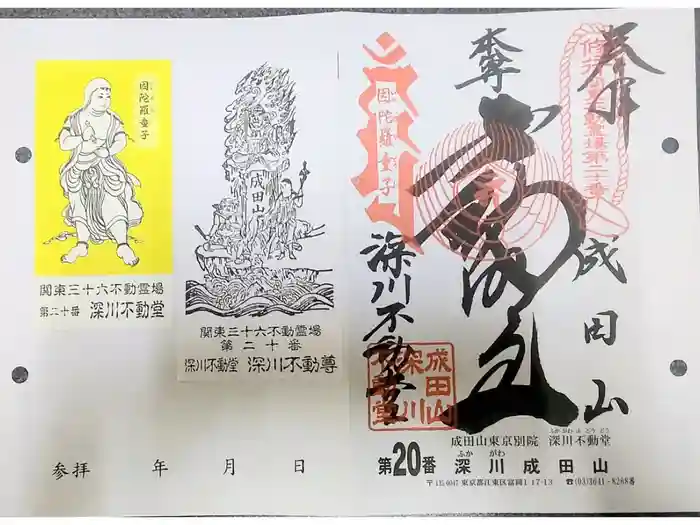 因陀羅童子
関東三十六不動霊場
第二十番 深川不動堂
成田山
関東三十六不動霊場
第二十番
深川不動堂 深川不動尊
参拝 年 月 日
奉拝
修行の道場
成田山
本尊
因陀羅童子
深川不動堂
成田山
深川
不動堂
成田山東京別院 深川不動堂
ふかがわふどうどう
ふか がわ
第20番 深川成田山
〒135-0047 東京都江東区富岡1-17-13 ☎(03)3641-8288番